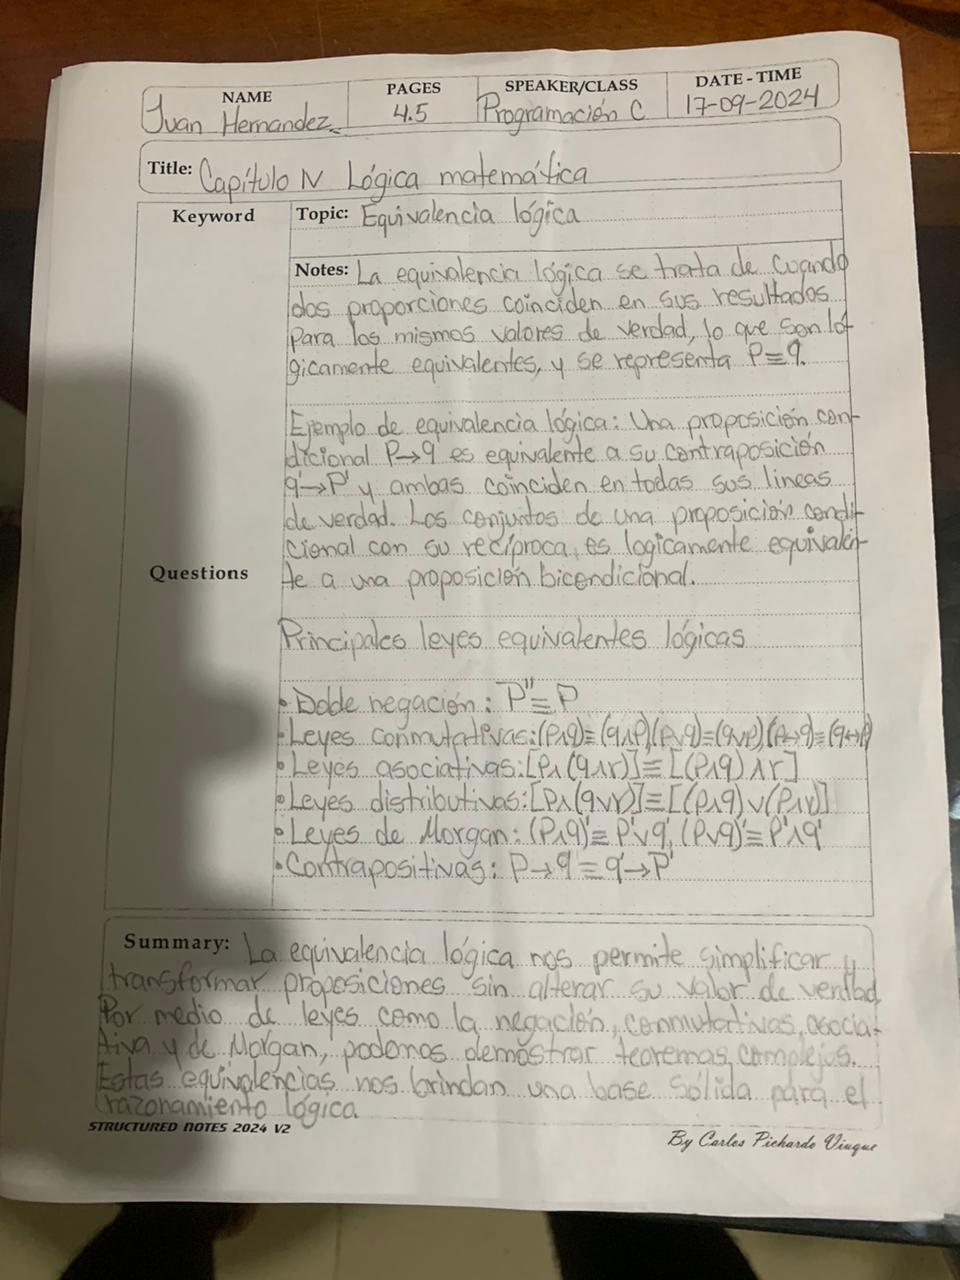 NAME PAGES SPEAKER/CLASS DATE - TIME
Juan Hernandez. 4.5 Programación C 17-09-2024
Title: Capítulo IV Lógica matemática
Keyword Topic: Equivalencia lógica
Notes: La equivalencia lógica se trata de cuando
dos proporciones coinciden en sus resultados
para los mismos valores de verdad, lo que son ló-
gicamente equivalentes, y se representa P≡q.
Ejemplo de equivalencia lógica: Una proposición con-
dicional P→q es equivalente a su contraposición
q'→P' y ambas coinciden en todas sus lineas
de verdad. Los conjuntos de una proposición condi-
cional con su recíproca, es logicamente equivalen-
Questions
te a una proposición bicondicional.
Principales leyes equivalentes lógicas
• Doble negación: P''≡P
• Leyes conmutativas: (P∧q)≡(q∧P),(P∨q)≡(q∨P),(P↔q)≡(q↔P)
• Leyes asociativas: [P∧(q∧r)]≡[(P∧q)∧r]
• Leyes distributivas: [P∧(q∨r)]≡[(P∧q)∨(P∧r)]
• Leyes de Morgan: (P∧q)'≡P'∨q', (P∨q)'≡P'∧q'
• Contrapositivas: P→q≡q'→P'
Summary: La equivalencia lógica nos permite simplificar y
transformar proposiciones sin alterar su valor de verdad
Por medio de leyes como la negación, conmutativas, asocia-
tiva y de Morgan, podemos demostrar teoremas complejos.
Estas equivalencias nos brindan una base sólida para el
razonamiento lógica
STRUCTURED NOTES 2024 V2
By Carlos Pichardo Viuque